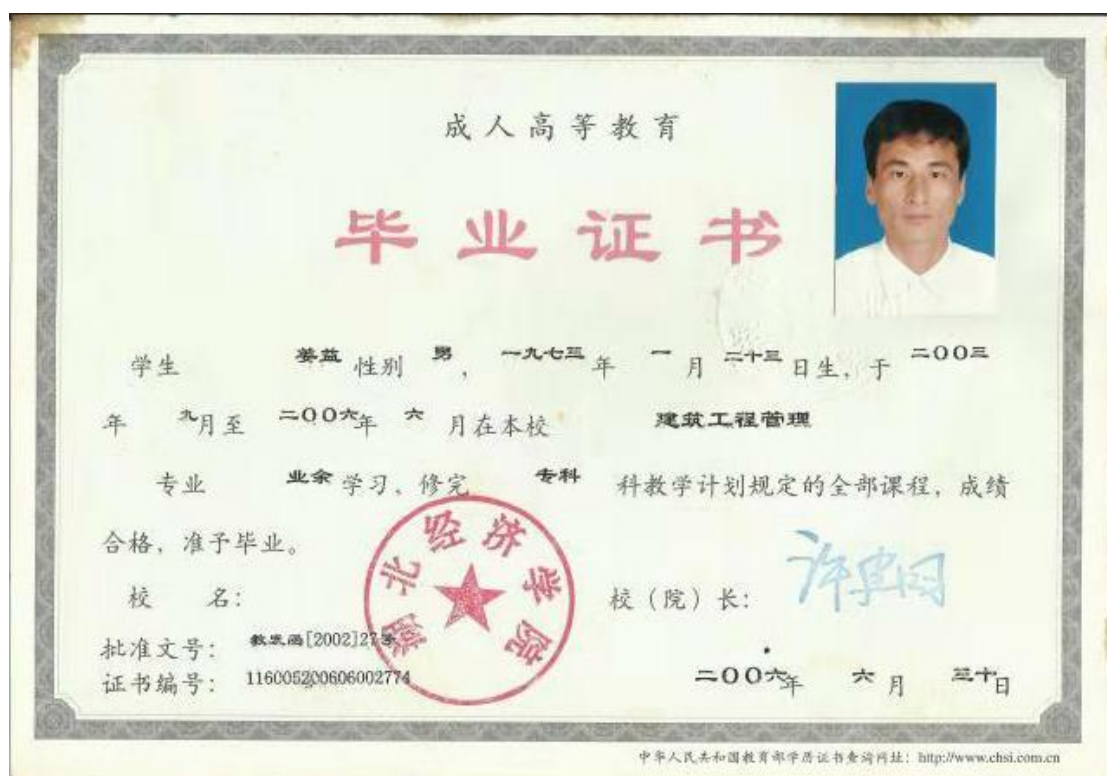 成人高等教育
毕业证书
学生 姜益 性别 男, 一九七三 年 一 月 二十三 日生, 于 二00三
年 九月至 二00六年 六 月在本校 建筑工程管理
专业 业余 学习、修完 专科 科教学计划规定的全部课程, 成绩
合格, 准予毕业。
湖北经济学院
校 名: 校(院)长:
批准文号: 教发函[2002]27号
证书编号: 116005200606002774 二00六年 六 月 三十日
中华人民共和国教育部学历证书查询网址: http://www.chsi.com.cn